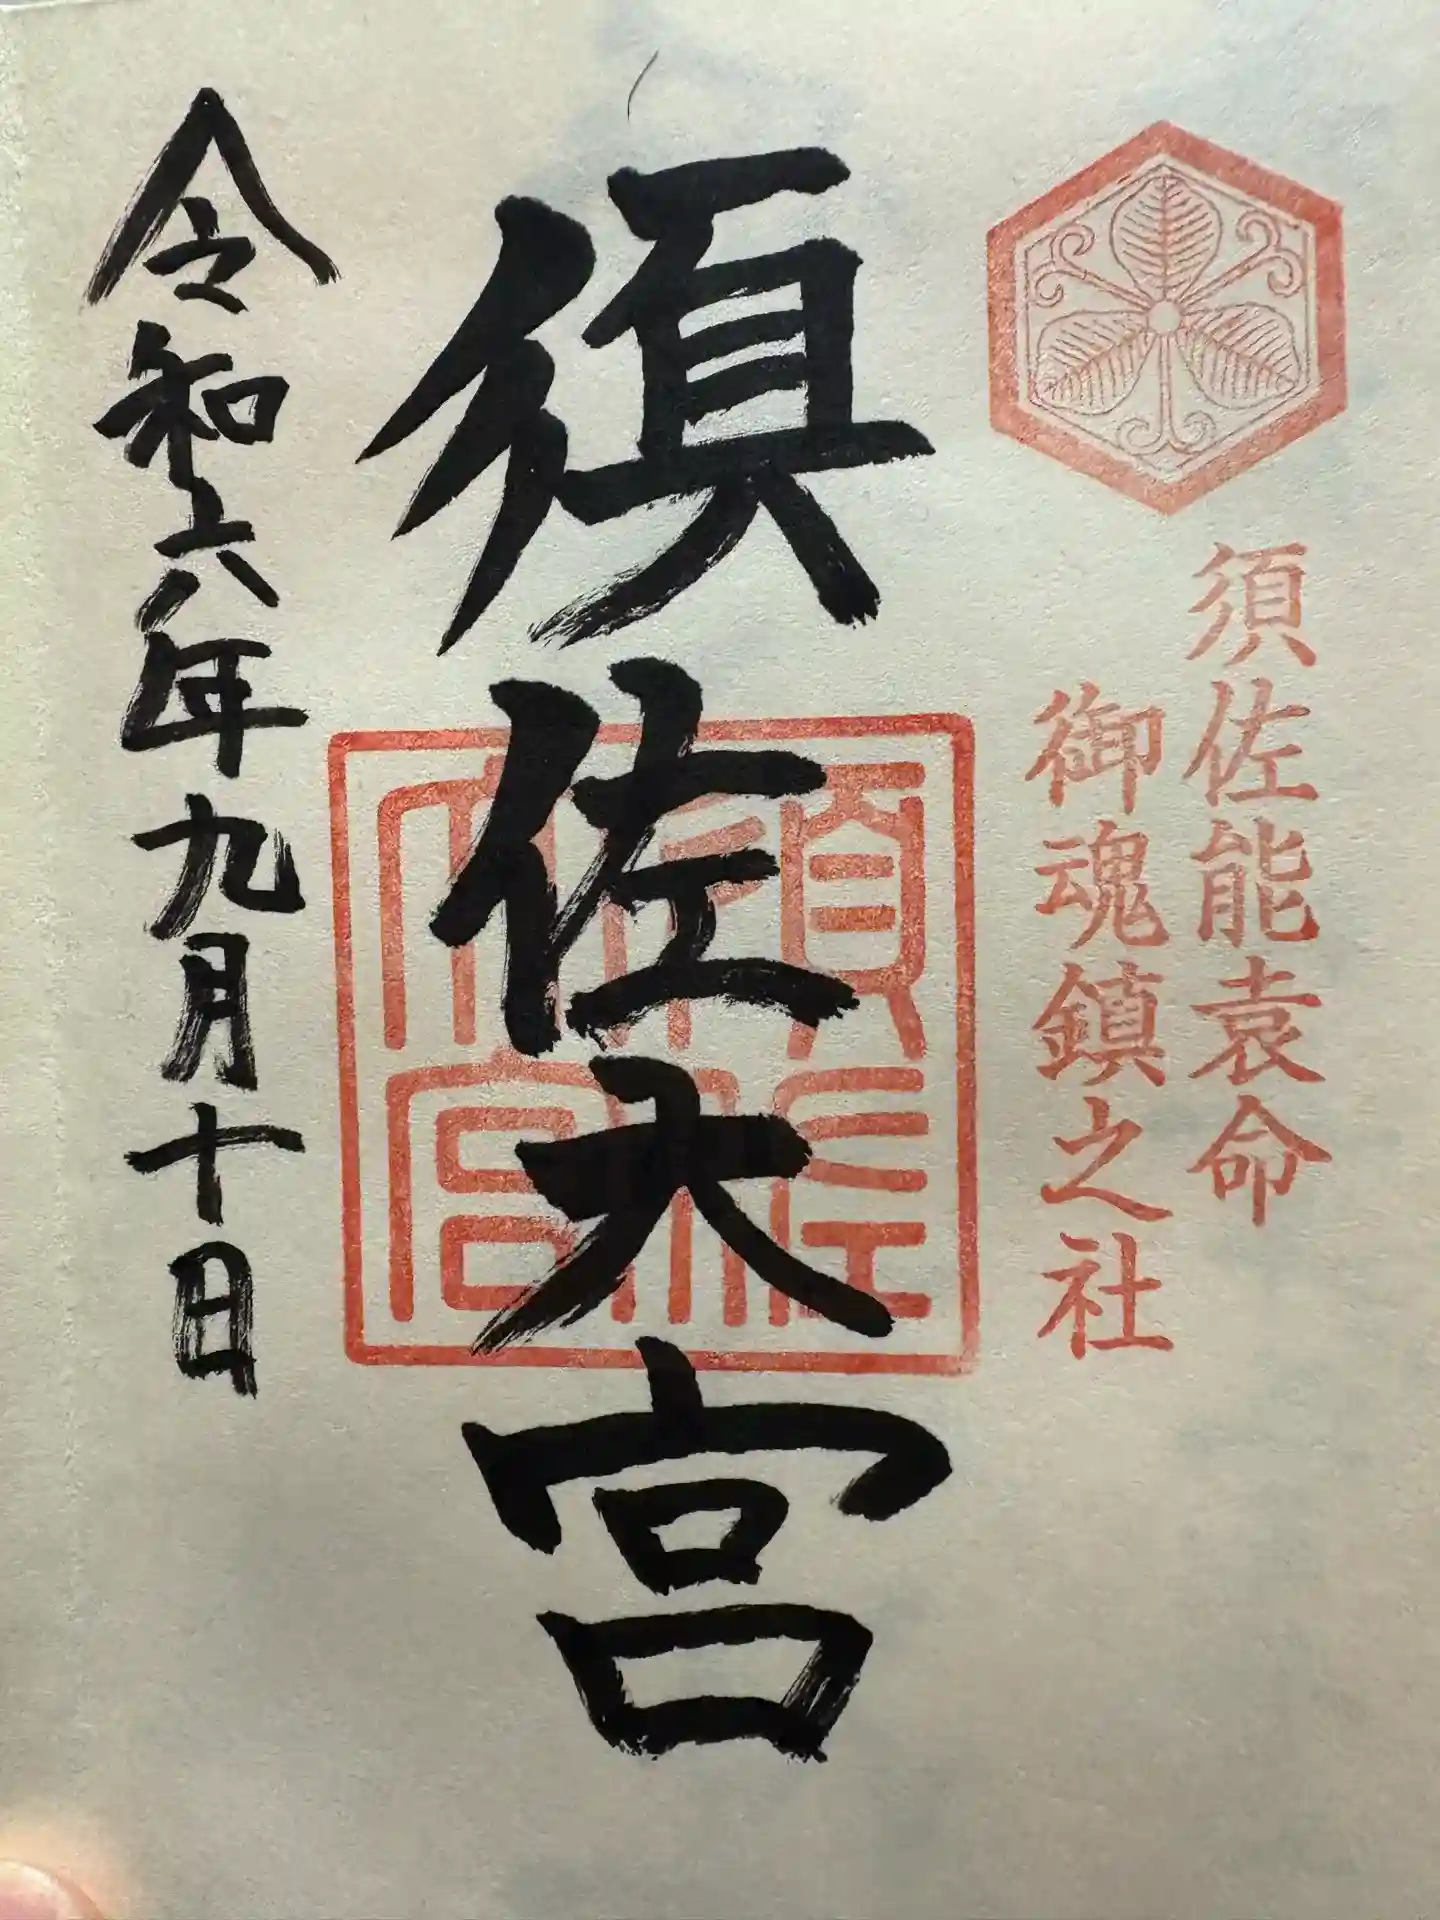 須佐能袁命
御魂鎮之社
須佐大宮
須佐大宮
令和六年九月十日